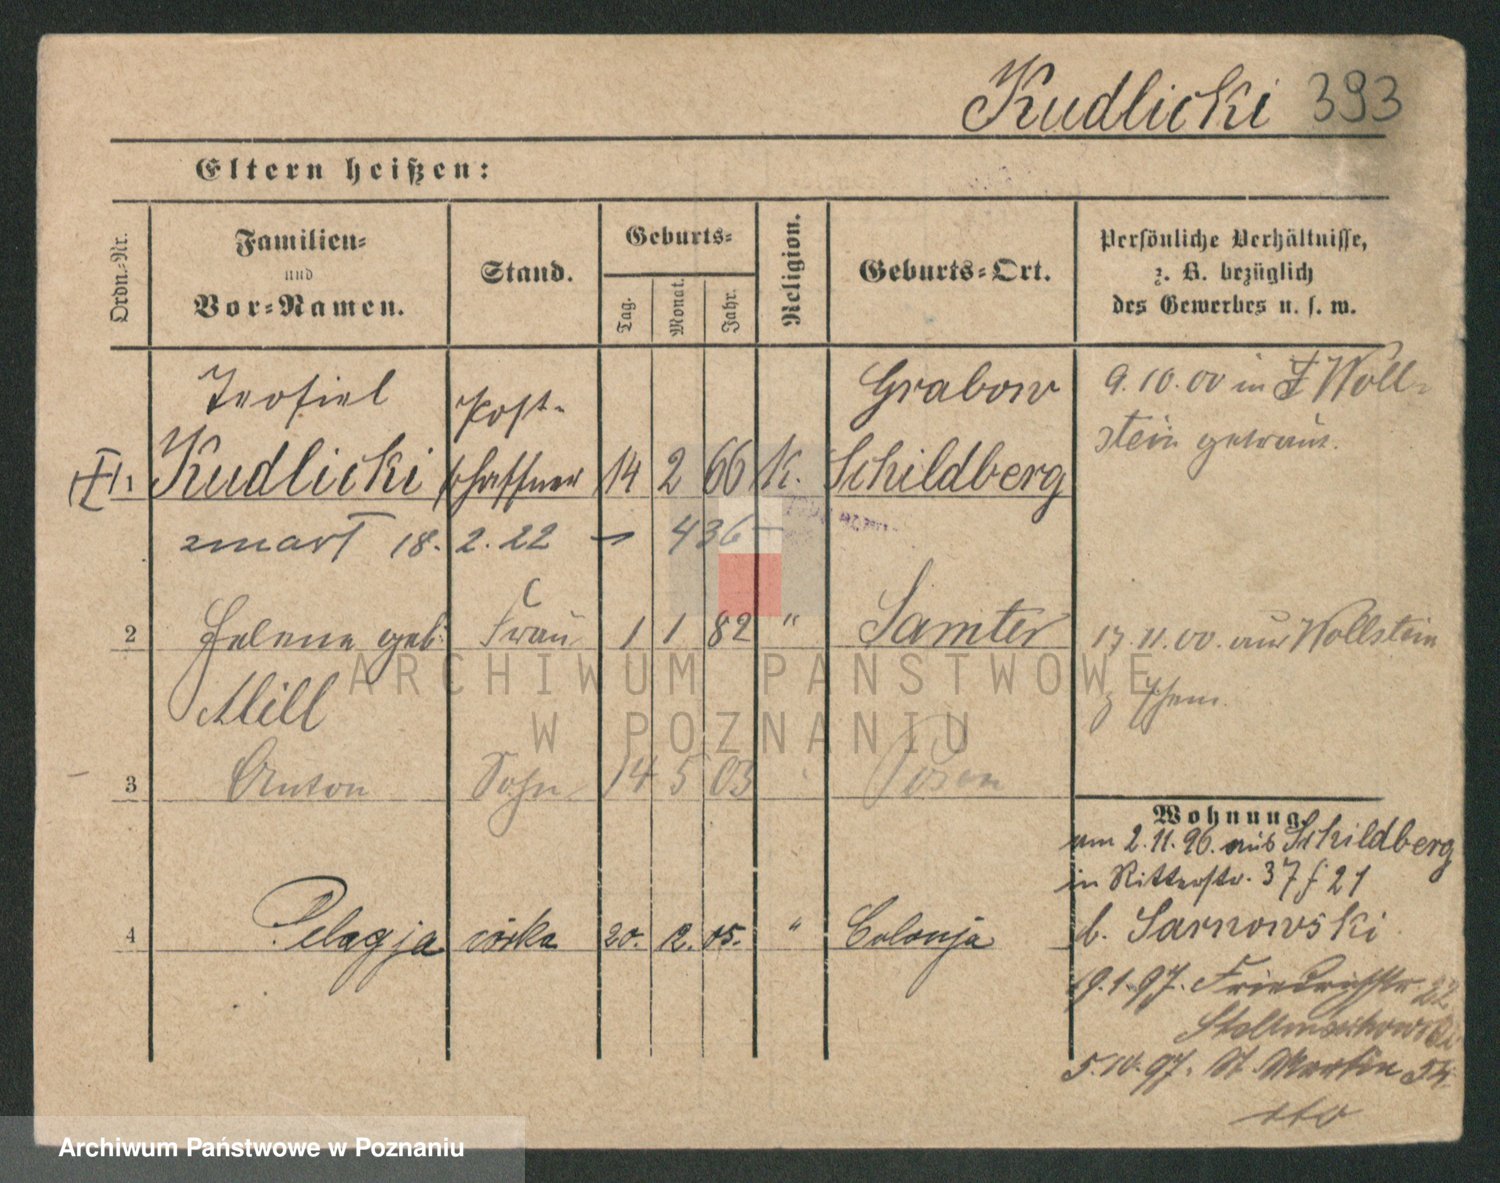 Kudlicki 393
Eltern heißen:
Ordn.-Nr.
Familien-
und
Vor-Namen.
Stand.
Geburts-
Tag.
Monat.
Jahr.
Religion.
Geburts-Ort.
Persönliche Verhältnisse,
z. B. bezüglich
des Gewerbes u. s. w.
Teofiel Post- Grabow 9.10.00 in Woll-
1 Kudlicki schaffner 14 2 66 K. Schildberg stein getraut.
zmarł 18. 2. 22 — 436
2 Helene geb. Frau 1 1 82 " Samter 17.11.00. aus Wollstein
Mill z Ehem.
3 Anton Sohn 14 5 03 Posen
Wohnung.
am 2.11.96. aus Schildberg
in Ritterstr. 37
4 Pelagja córka 20. 12. 05. " Colonja b. Sarnowski
19.1.97. Friedrichstr. 22
5.10.97. St. Martin 54
ARCHIWUM PAŃSTWOWE
W POZNANIU
Archiwum Państwowe w Poznaniu